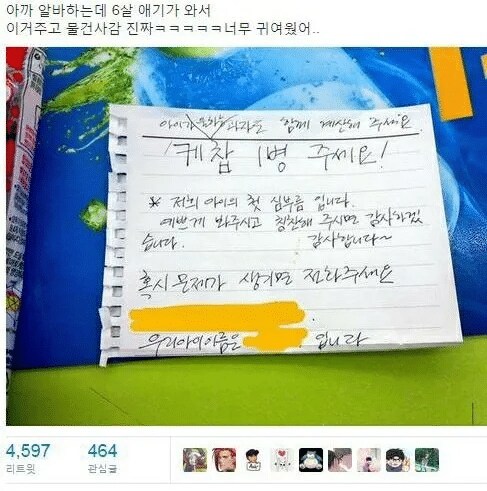 아까 알바하는데 6살 애기가 와서
이거주고 물건사감 진짜ㅋㅋㅋㅋㅋ너무 귀여웠어..
아이가 원하는 과자도 함께 계산해 주세요.
케찹 1병 주세요!
※ 저희 아이의 첫 심부름 입니다.
예쁘게 봐주시고 칭찬해 주시면 감사하겠
습니다. 감사합니다~
혹시 문제가 생기면 전화주세요
우리아이이름은 입니다
4,597 464
리트윗 관심글